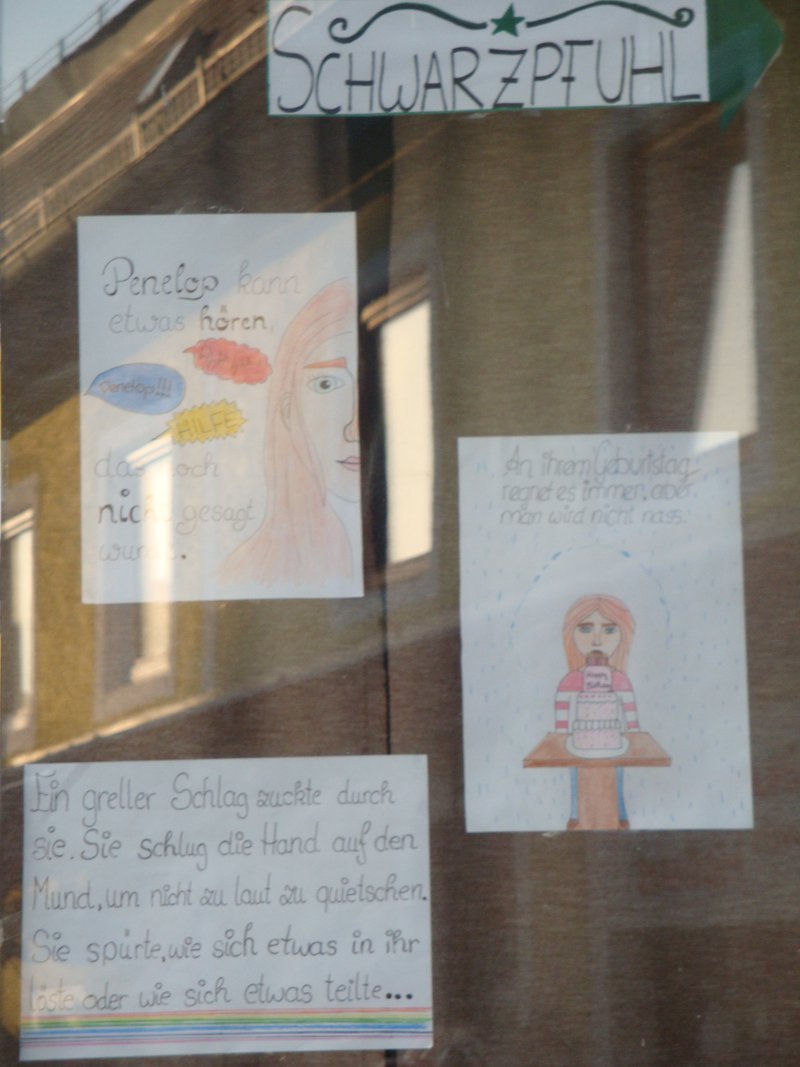 SCHWARZPFUHL
Penelop kann
etwas hören,
Penelop!!!
HILFE
das noch
nicht gesagt
wurde.
An ihrem Geburtstag
regnet es immer, aber
man wird nicht nass.
Happy
Ein greller Schlag zuckte durch
sie. Sie schlug die Hand auf den
Mund, um nicht zu laut zu quietschen.
Sie spürte, wie sich etwas in ihr
löste oder wie sich etwas teilte...